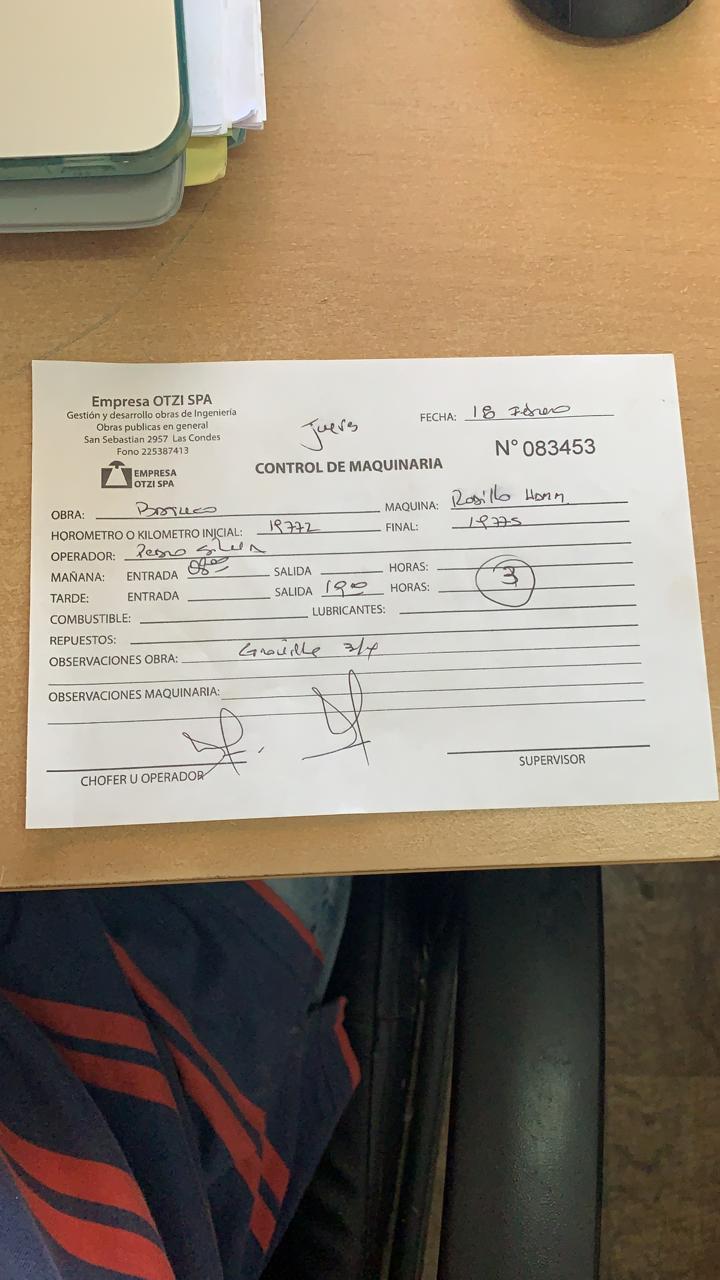 Empresa OTZI SPA
Gestión y desarrollo obras de Ingeniería
Obras publicas en general
San Sebastian 2957 Las Condes
Fono 225387413
EMPRESA
OTZI SPA
Jueves
FECHA: 18 Febrero
N° 083453
CONTROL DE MAQUINARIA
OBRA:
MAQUINA: Rodillo Hamm
HOROMETRO O KILOMETRO INICIAL: 19772 FINAL: 19775
OPERADOR: Pedro Silva
MAÑANA: ENTRADA 0800 SALIDA HORAS:
TARDE: ENTRADA SALIDA 1900 HORAS: 3
COMBUSTIBLE: LUBRICANTES:
REPUESTOS:
OBSERVACIONES OBRA: 3/4
OBSERVACIONES MAQUINARIA:
CHOFER U OPERADOR
SUPERVISOR